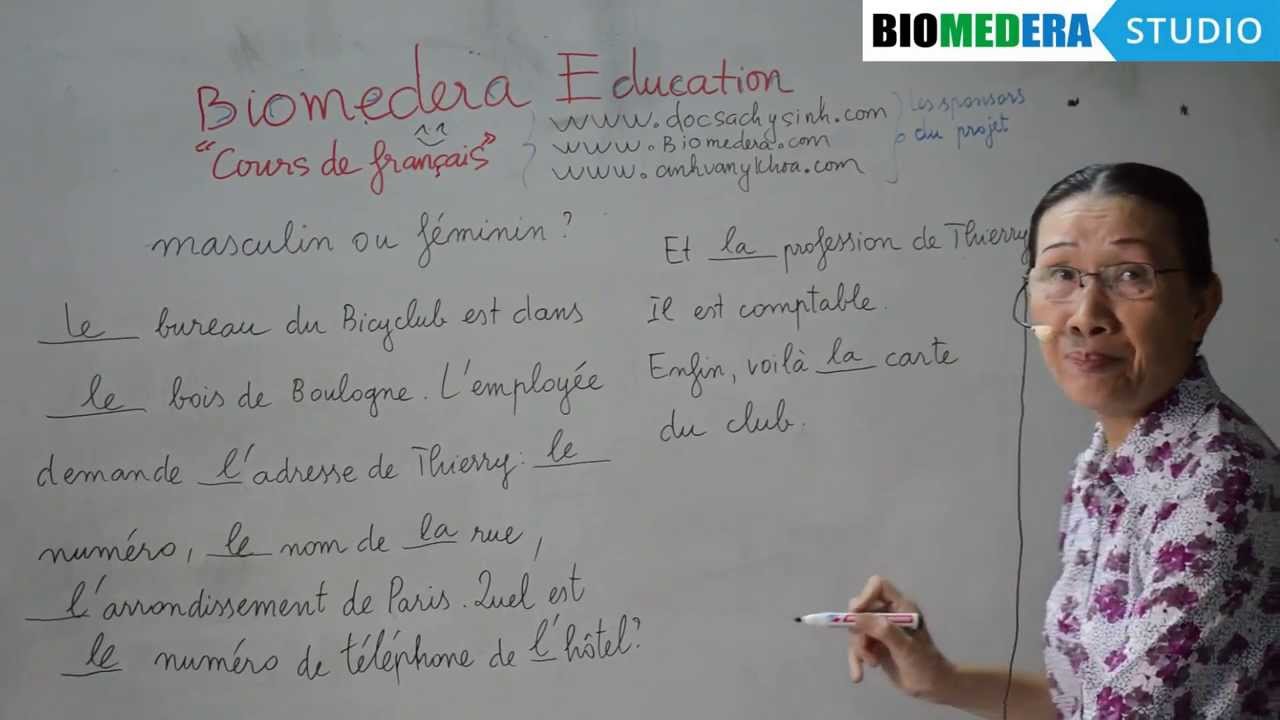 BIOMEDERA STUDIO
Biomedera Education
"Cours de français"
www.docsachysinh.com
www.Biomedera.com
www.anhvanykhoa.com
les sponsors
du projet
masculin ou féminin?
le bureau du Bicyclub est dans
le bois de Boulogne. L'employée
demande l'adresse de Thierry: le
numéro, le nom de la rue,
l'arrondissement de Paris. Quel est
le numéro de téléphone de l'hôtel?
Et la profession de Thierry
Il est comptable.
Enfin, voilà la carte
du club.